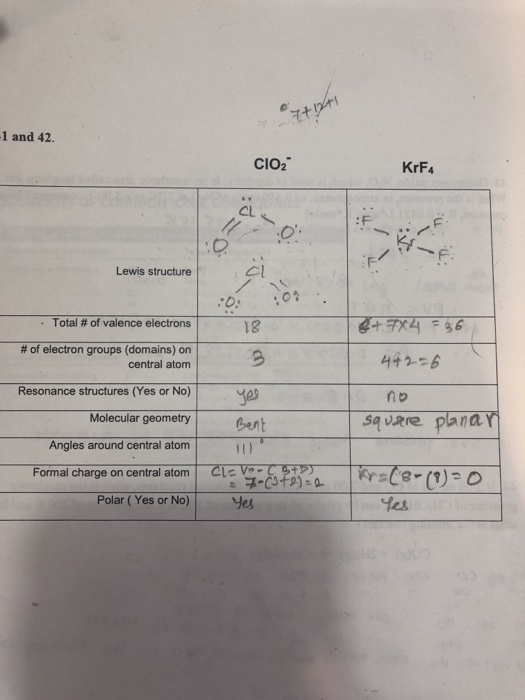 7+12+1
-1 and 42.
ClO2⁻ KrF4
Cl :F F:
:O O: Kr
:F F:
Lewis structure Cl
:O: :O:
Total # of valence electrons 18 8+7×4=36
# of electron groups (domains) on
central atom 3 4+2=6
Resonance structures (Yes or No) yes no
Molecular geometry Bent square planar
Angles around central atom 111°
Formal charge on central atom Kr=(8-(8)=0
= 7-(3+2)=2
Polar ( Yes or No) Yes Yes